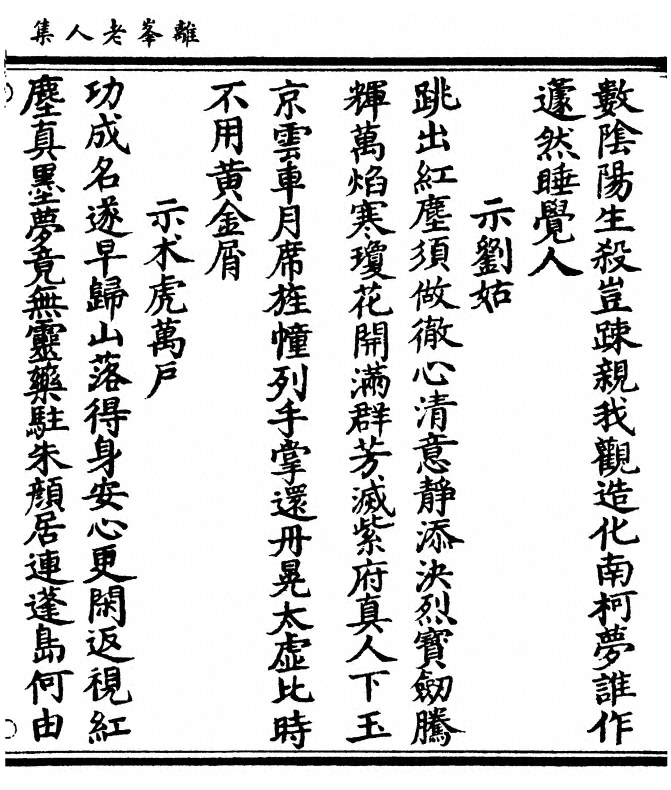 離峯老人集
數陰陽生殺豈踈親我觀造化南柯夢誰作
蘧然睡覺人
示劉姑
跳出紅塵須做徹心清意靜添決烈寶劒騰
輝萬焰寒瓊花開滿群芳滅紫府真人下玉
京雲車月席旌幢列手掌還丹晃太虛比時
不用黃金屑
示朮虎萬戶
功成名遂早歸山落得身安心更閑返視紅
塵真墨夢竟無靈藥駐朱顏居連蓬島何由